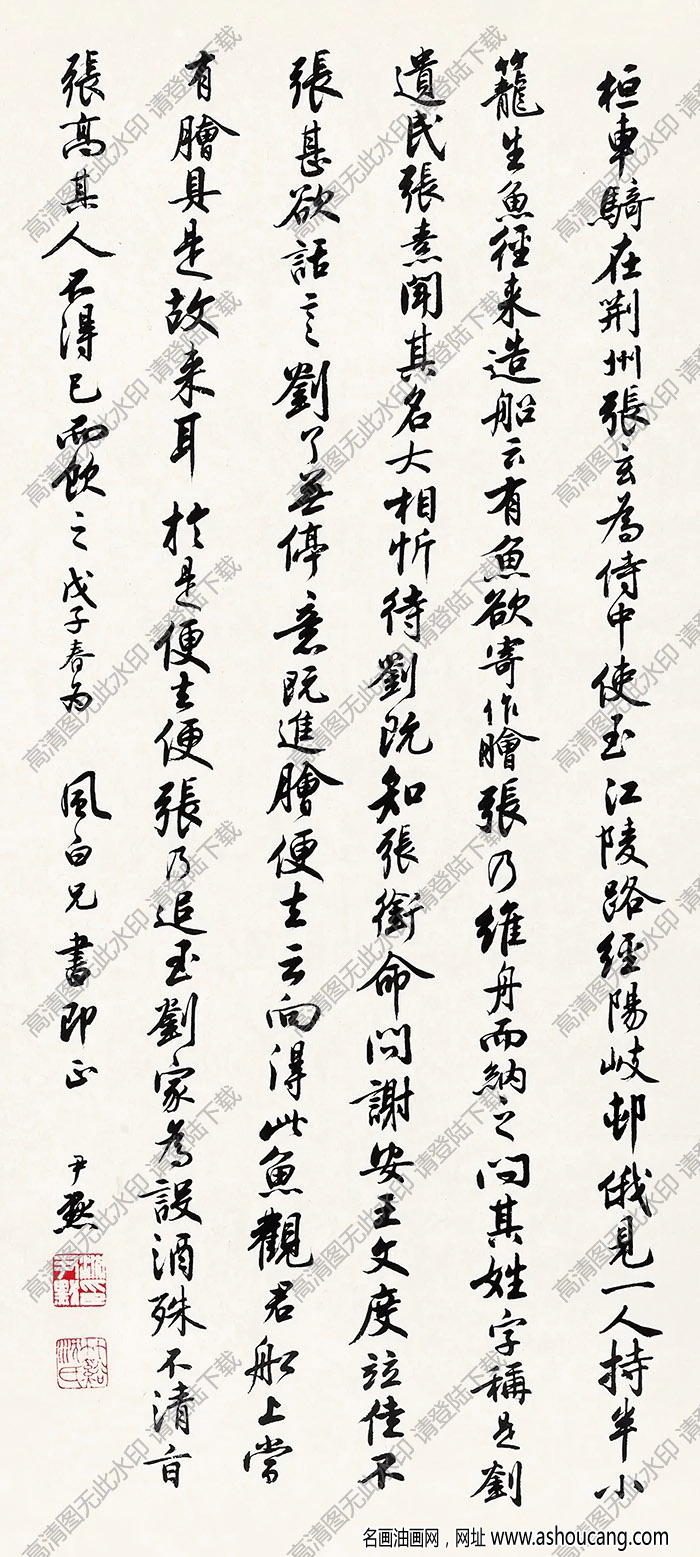 桓車騎在荆州張玄為侍中使至江陵路經陽岐邨俄見一人持半小
籠生魚徑来造船云有魚欲寄作膾張乃維舟而納之問其姓字稱是劉
遺民張素聞其名大相忻待劉既知張銜命問謝安王文度竝佳不
張甚欲話言劉了無停意既進膾便去云向得此魚觀君船上當
有膾具是故来耳於是便去便張乃追至劉家為設酒殊不清旨
張高其人不得已而飲之戊子春為 風白兄書即正 尹默
竹谿沈氏
高清图无此水印 请登陆下载
名画油画网，网址 www.ashoucang.com